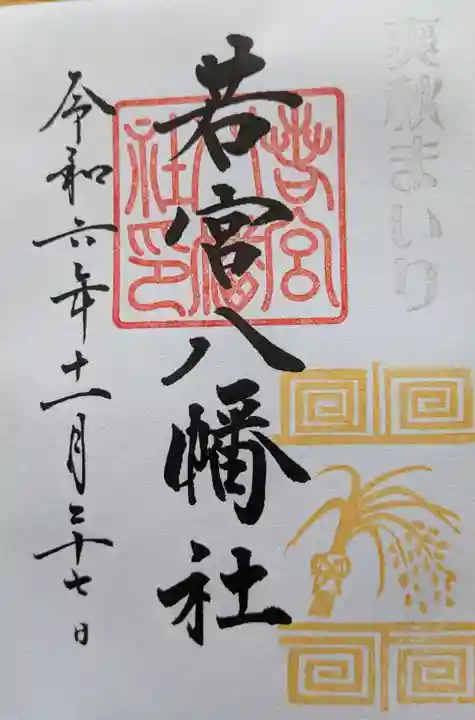 爽秋まいり
若宮八幡社
若宮八幡社印
令和六年十一月二十七日